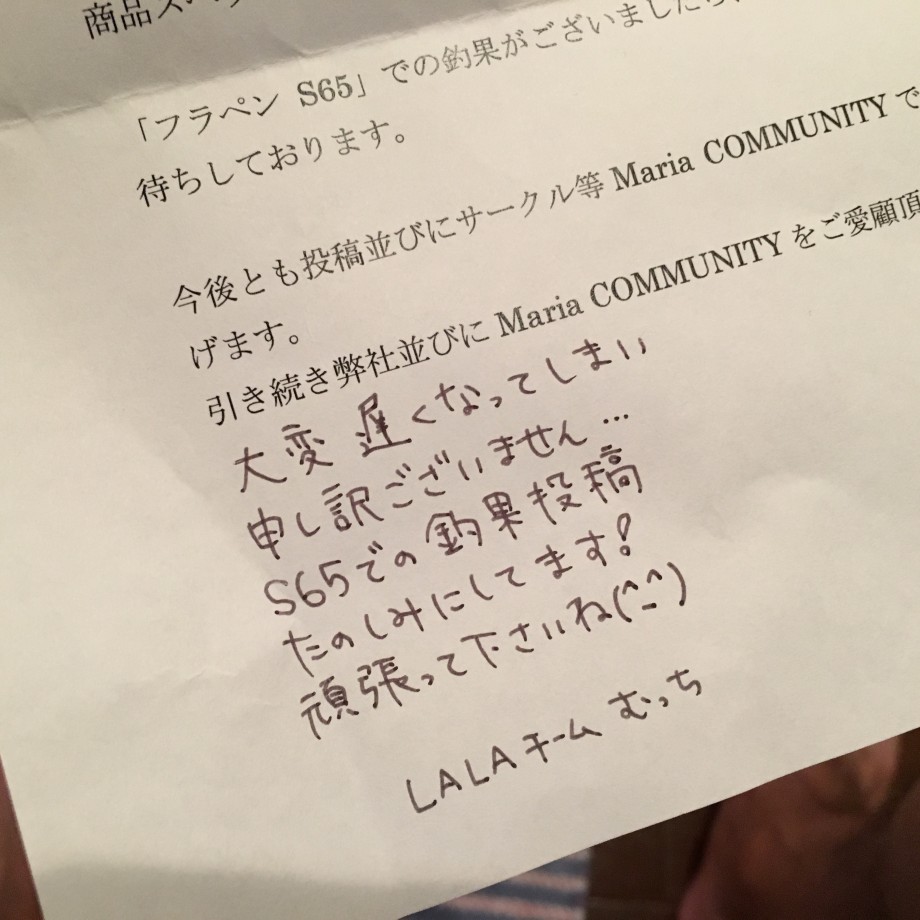 商品ス
「フラペン S65」での釣果がございましたら、
待ちしております。
今後とも投稿並びにサークル等 Maria COMMUNITY で
げます。
引き続き弊社並びに Maria COMMUNITY をご愛顧頂
大変 遅くなってしまい
申し訳ございません…
S65での釣果投稿
たのしみにしてます!
頑張って下さいね(^_^)
LALAチーム むっち